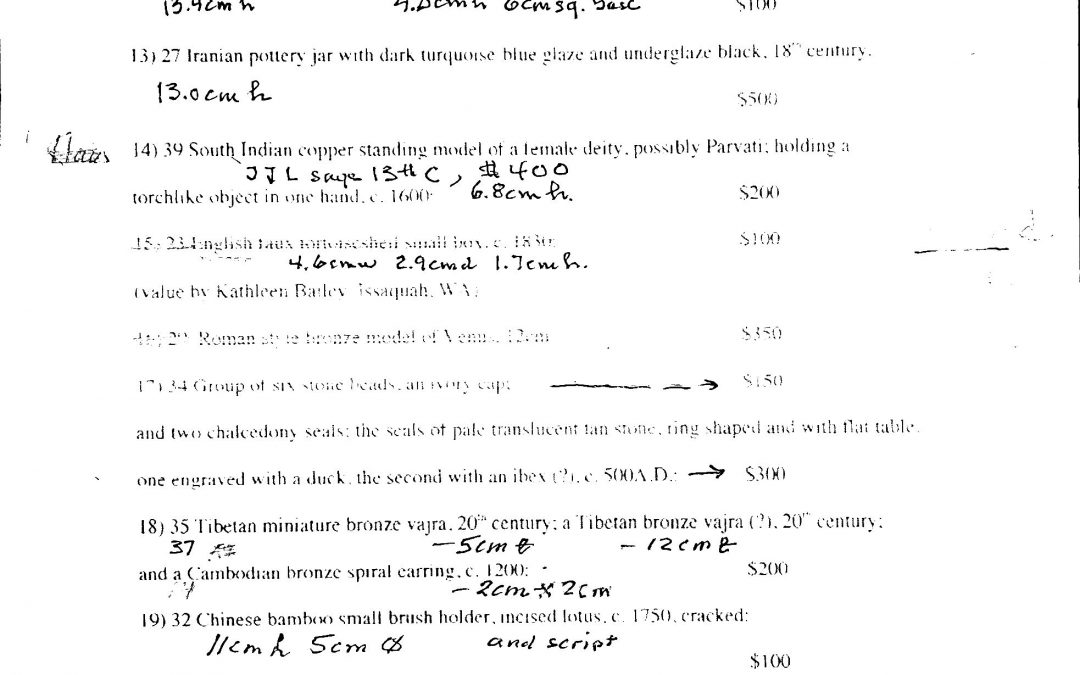 13.9cm h 9.5cm h 6cm sq. base $100
13) 27 Iranian pottery jar with dark turquoise blue glaze and underglaze black, 18th century.
13.0cm h
$500
14) 39 South Indian copper standing model of a female deity, possibly Parvati; holding a
JJL says 13th C, $400
torchlike object in one hand, c. 1600: 6.8cm h. $200
15) 23 English faux tortoiseshell small box, c. 1830: $100
4.6cm w 2.9cm d 1.7cm h.
(value by Kathleen Bailey Issaquah, WA)
16) 29 Roman style bronze model of Venus, 12cm $350
17) 34 Group of six stone beads, an ivory cap; → $150
and two chalcedony seals: the seals of pale translucent tan stone, ring shaped and with flat table,
one engraved with a duck, the second with an ibex (?), c. 500A.D.: → $300
18) 35 Tibetan miniature bronze vajra, 20th century; a Tibetan bronze vajra (?), 20th century;
37 -5cm -12cm
and a Cambodian bronze spiral earring, c. 1200: $200
-2cm x 2cm
19) 32 Chinese bamboo small brush holder, incised lotus, c. 1750, cracked:
11cm h 5cm and script
$100